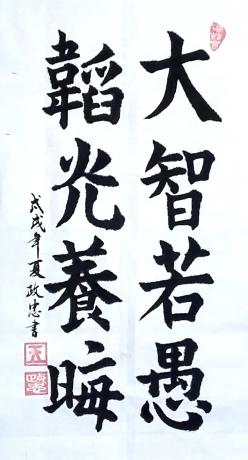 大智若愚
韜光養晦
戊戌年夏政忠書